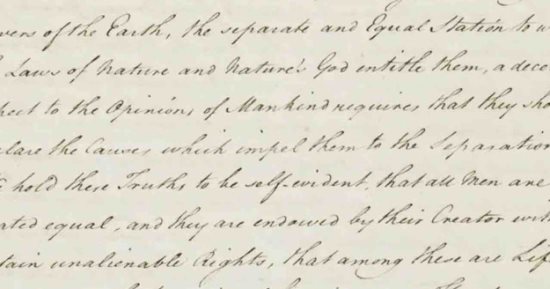 wers of the Earth, the separate and Equal Station to w
Laws of Nature and Nature's God entitle them, a dece
pect to the Opinions of Mankind requires that they sho
clare the Causes which impel them to the Separation
hold these Truths to be self-evident, that all Men are
ated equal, and they are endowed by their Creator with
tain unalienable Rights, that among these are Lif